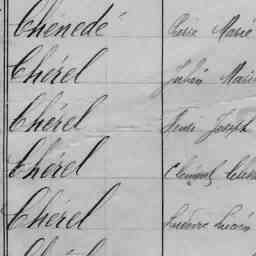 Chenedé Marie
Chérel Julien Marie
Chérel Henri Joseph
Chérel Clément
Chérel Lucien